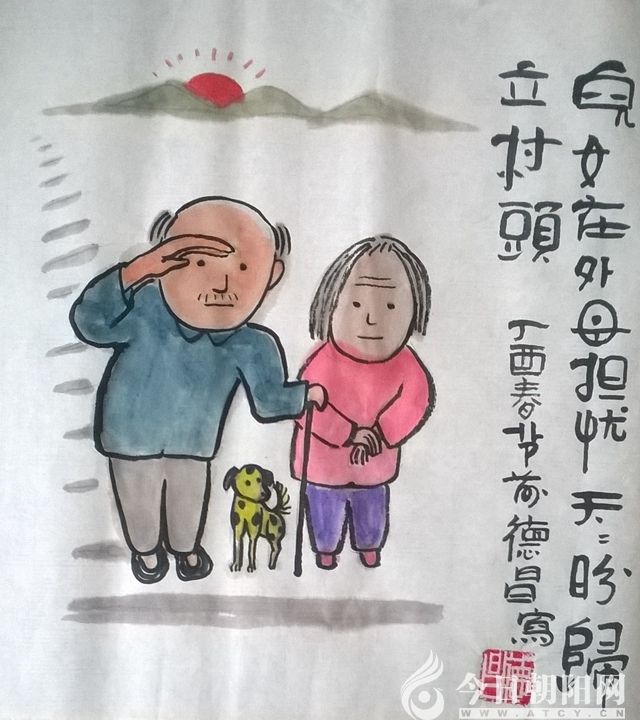 兒女在外母担忧天〻盼歸
立村頭
丁酉春节前德昌寫
今日朝阳网
WWW.ATCY.CN